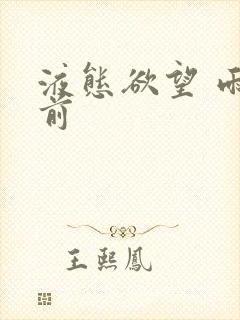 液態欲望 雨
前
王熙鳳